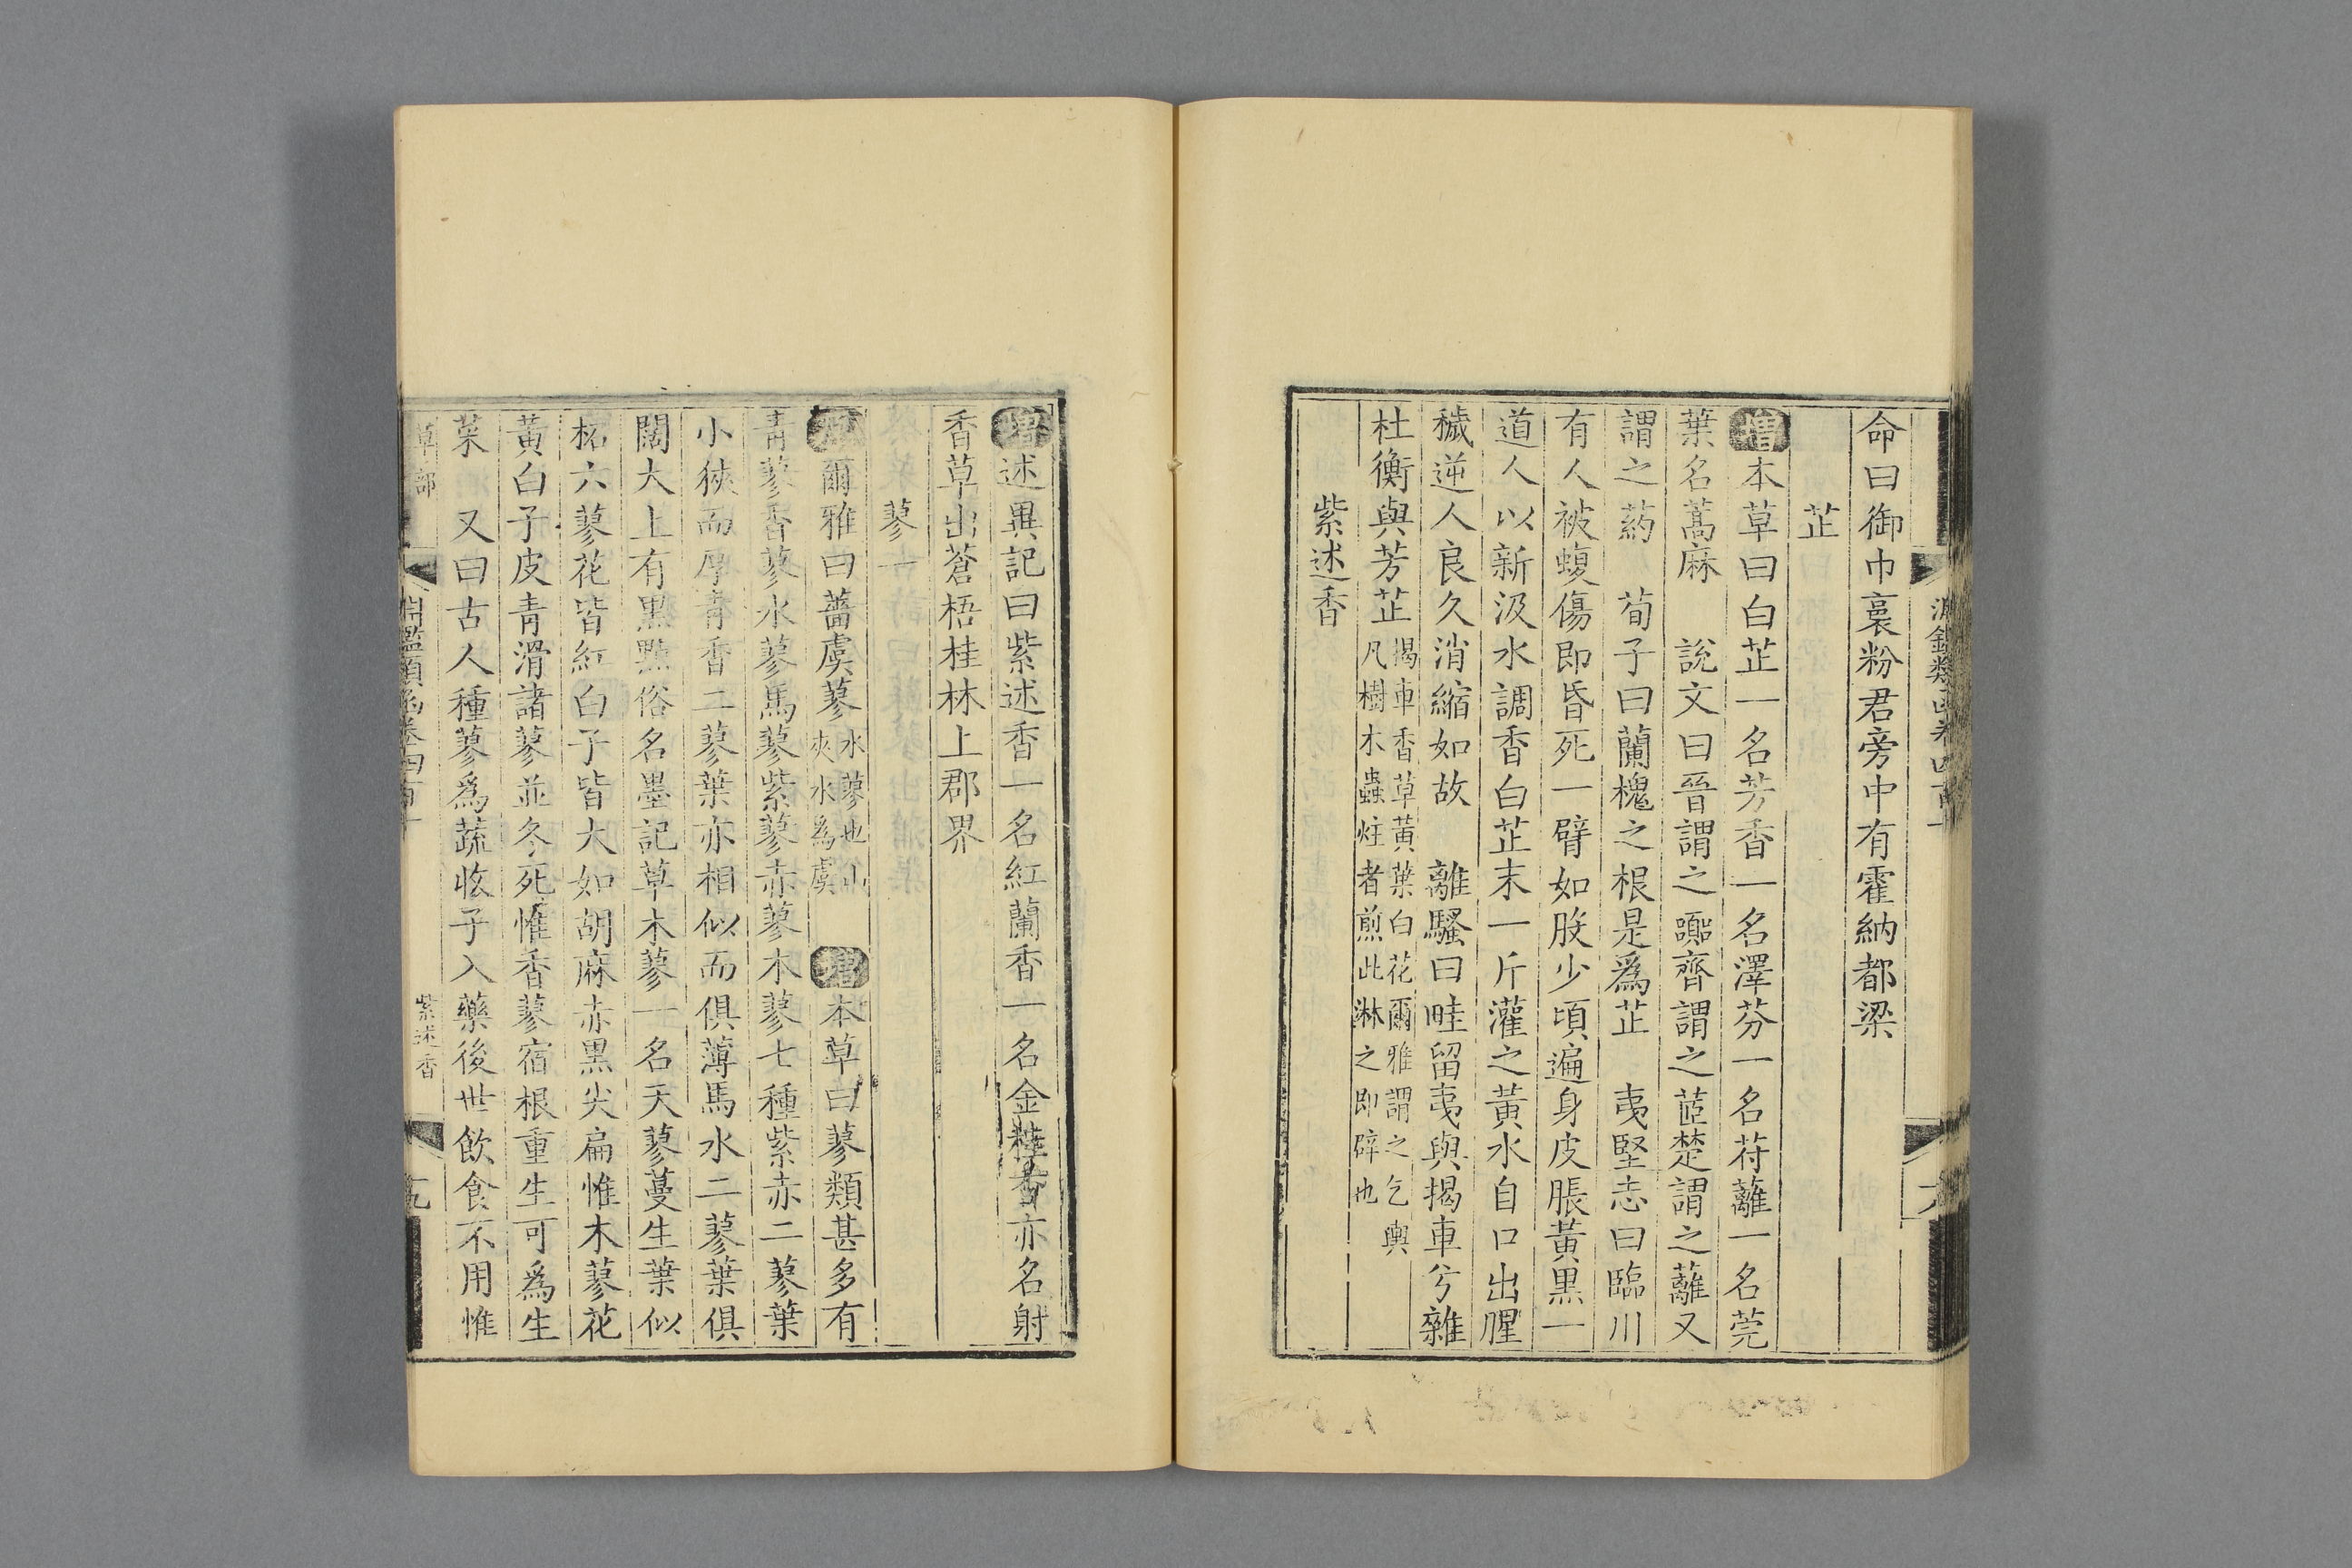 命曰御巾裛粉君旁中有霍納都梁
芷
增本草曰白芷一名芳香一名澤芬一名苻蘺一名莞
葉名蒿麻　說文曰晉謂之䖀齊謂之茝楚謂之蘺又
謂之葯　荀子曰蘭槐之根是爲芷　夷堅志曰臨川
有人被蝮傷即昏死一臂如股少頃遍身皮脹黃黑一
道人以新汲水調香白芷末一斤灌之黃水自口出腥
穢逆人良久消縮如故　離騷曰畦留夷與揭車兮雜
杜衡與芳芷揭車香草黃葉白花爾雅謂之乞輿凡樹木蟲炷者煎此淋之即辟也
紫述香
增述異記曰紫述香一名紅蘭香一名金桂香亦名射
香草出蒼梧桂林上郡界
蓼一
原爾雅曰薔虞蓼水蓼也山夾水爲虞　增本草曰蓼類甚多有
青蓼香蓼水蓼馬蓼紫蓼赤蓼木蓼七種紫赤二蓼葉
小狹而厚青香二蓼葉亦相似而俱薄馬水二蓼葉俱
闊大上有黑點俗名墨記草木蓼一名天蓼蔓生葉似
柘六蓼花皆紅白子皆大如胡麻赤黑尖扁惟木蓼花
黃白子皮青滑諸蓼並冬死惟香蓼宿根重生可爲生
菜　又曰古人種蓼爲蔬收子入藥後世飲食不用惟
草部
淵鑑類函卷四百十
紫述香